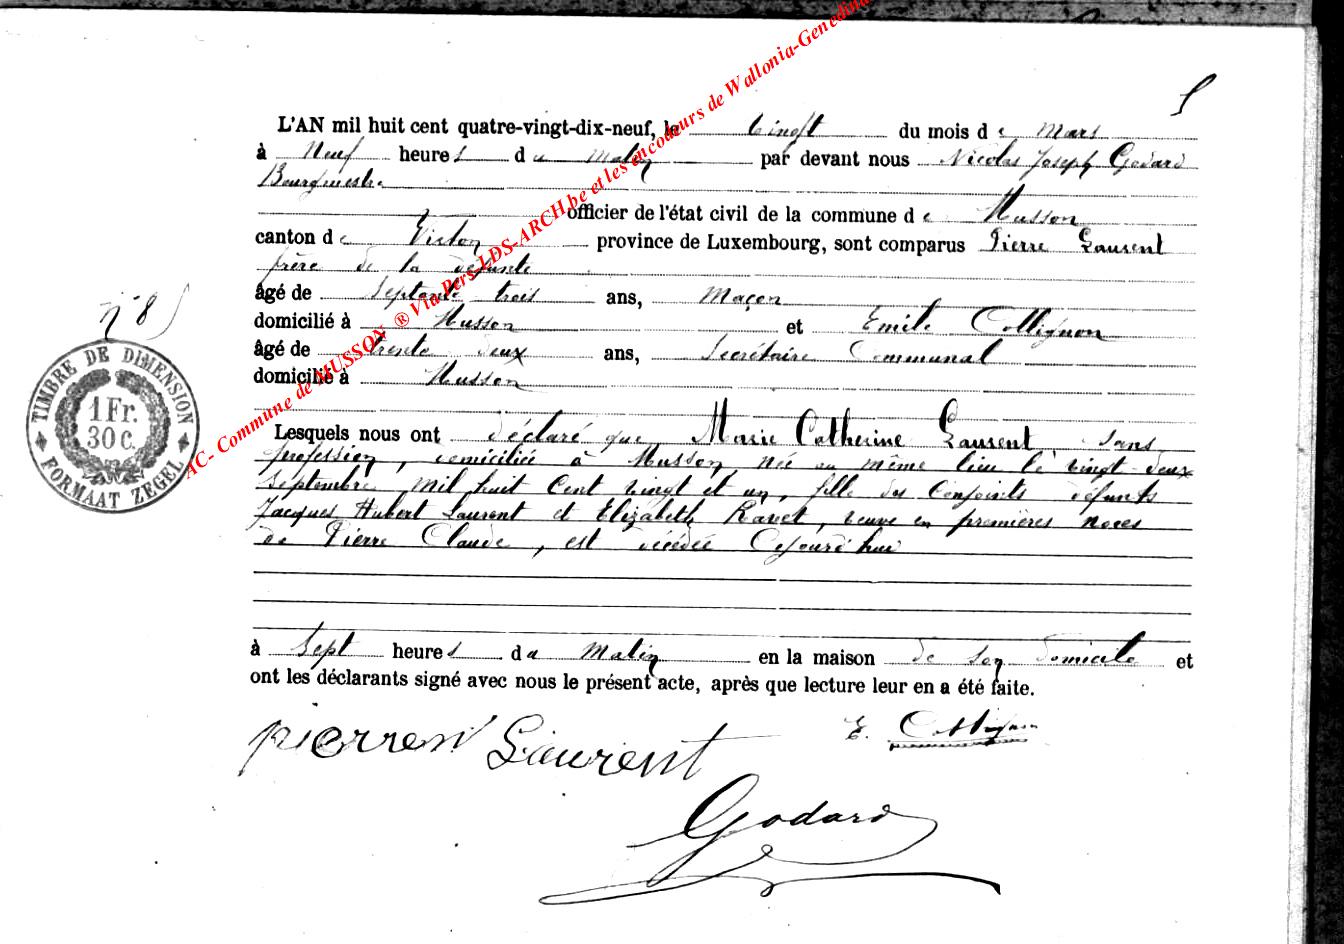 5
L'AN mil huit cent quatre-vingt-dix-neuf, le vingt du mois de Mars
à Neuf heures du matin par devant nous Nicolas Joseph Godard
Bourgmestre
officier de l'état civil de la commune de Musson
canton de Virton province de Luxembourg, sont comparus Pierre Laurent
frère de la défunte
âgé de Septante trois ans, Maçon
domicilié à Musson et Emile Collignon
âgé de trente deux ans, Secrétaire Communal
domicilié à Musson
n° 8
TIMBRE DE DIMENSION
1 Fr.
30 C.
FORMAAT ZEGEL
Lesquels nous ont déclaré que Marie Catherine Laurent, sans
profession, domiciliée à Musson, née au même lieu le vingt deux
Septembre mil huit cent vingt et un, fille des conjoints défunts
Jacques Hubert Laurent et Elizabeth Ravet, veuve en premières noces
de Pierre Claude, est décédée Cejourd'hui
à Sept heures du Matin en la maison de son domicile et
ont les déclarants signé avec nous le présent acte, après que lecture leur en a été faite.
pierren Laurent E. Collignon
Godard
AC- Commune de MUSSON ® Via Pers LDS-ARCH.be et les encodeurs de Wallonia-Genedina